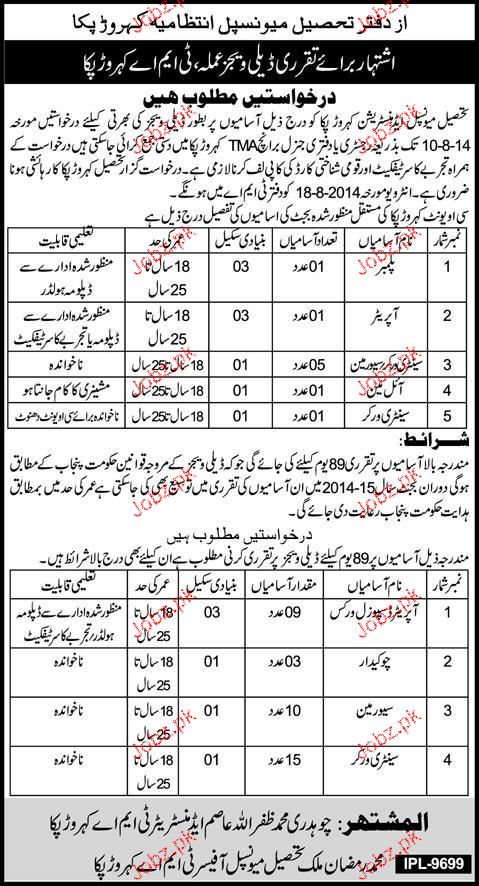 از دفتر تحصیل میونسپل انتظامیہ کہروڑپکا
اشتہار برائے تقرری ڈیلی ویجز عملہ، ٹی ایم اے کہروڑپکا
درخواستیں مطلوب ہیں
تحصیل میونسپل ایڈمنسٹریشن کہروڑپکا کو درج ذیل آسامیوں پر بطور ڈیلی ویجز کی بھرتی کیلئے درخواستیں مورخہ
10-8-14 تک بذریعہ رجسٹری یا دفتری جنرل برانچ TMA کہروڑپکا میں دستی جمع کرائی جاسکتی ہیں درخواست کے
ہمراہ تجربے کا سرٹیفکیٹ اور قومی شناختی کارڈ کی کاپی لف کرنا لازمی ہے۔ درخواست گزار تحصیل کہروڑپکا کا رہائشی ہونا
ضروری ہے۔ انٹرویو مورخہ 18-8-2014 کو دفتر ٹی ایم اے میں ہونگے۔
سی او یونٹ کہروڑپکا کی مستقل منظور شدہ بجٹ کی اسامیوں کی تفصیل درج ذیل ہے
نمبر شمار نام آسامیاں تعداد آسامیاں بنیادی سکیل عمر کی حد تعلیمی قابلیت
1 پلمبر 01 عدد 03 18 سال تا 25 سال منظور شدہ ادارے سے ڈپلومہ ہولڈر
2 آپریٹر 01 عدد 03 18 سال تا 25 سال منظور شدہ ادارے سے ڈپلومہ یا تجربے کا سرٹیفکیٹ
3 سینٹری ورکر سیورمین 05 عدد 01 18 سال تا 25 سال ناخواندہ
4 آئل مین 01 عدد 01 18 سال تا 25 سال مشینری کا کام جانتا ہو
5 سینٹری ورکر 01 عدد 01 18 سال تا 25 سال ناخواندہ برائے سی او یونٹ دھنوٹ
شرائط:
مندرجہ بالا آسامیوں پر تقرری 89 یوم کیلئے کی جائے گی جو کہ ڈیلی ویجز کے مروجہ قوانین حکومت پنجاب کے مطابق
ہوگی دوران بجٹ سال 15-2014 میں ان آسامیوں کی تقرری میں توسیع بھی کی جاسکتی ہے عمر کی حد میں بمطابق
ہدایت حکومت پنجاب رعایت دی جائے گی۔
درخواستیں مطلوب ہیں
مندرجہ ذیل آسامیوں پر 89 یوم کیلئے ڈیلی ویجز پر تقرری کرنی مطلوب ہے ان کیلئے بھی درج بالا شرائط ہیں۔
نمبر شمار نام آسامیاں مقدار آسامیاں بنیادی سکیل عمر کی حد تعلیمی قابلیت
1 آپریٹر ڈسپوزل ورکس 09 عدد 03 18 سال تا 25 سال منظور شدہ ادارے سے ڈپلومہ ہولڈر، تجربے کا سرٹیفکیٹ
2 چوکیدار 03 عدد 01 18 سال تا 25 سال ناخواندہ
3 سیورمین 10 عدد 01 18 سال تا 25 سال ناخواندہ
4 سینٹری ورکر 15 عدد 01 18 سال تا 25 سال ناخواندہ
المشتہر: چوہدری محمد ظفر اللہ عاصم ایڈمنسٹریٹر ٹی ایم اے کہروڑپکا
محمد رمضان ملک تحصیل میونسپل آفیسر ٹی ایم اے کہروڑپکا
IPL-9699
Jobz.pk